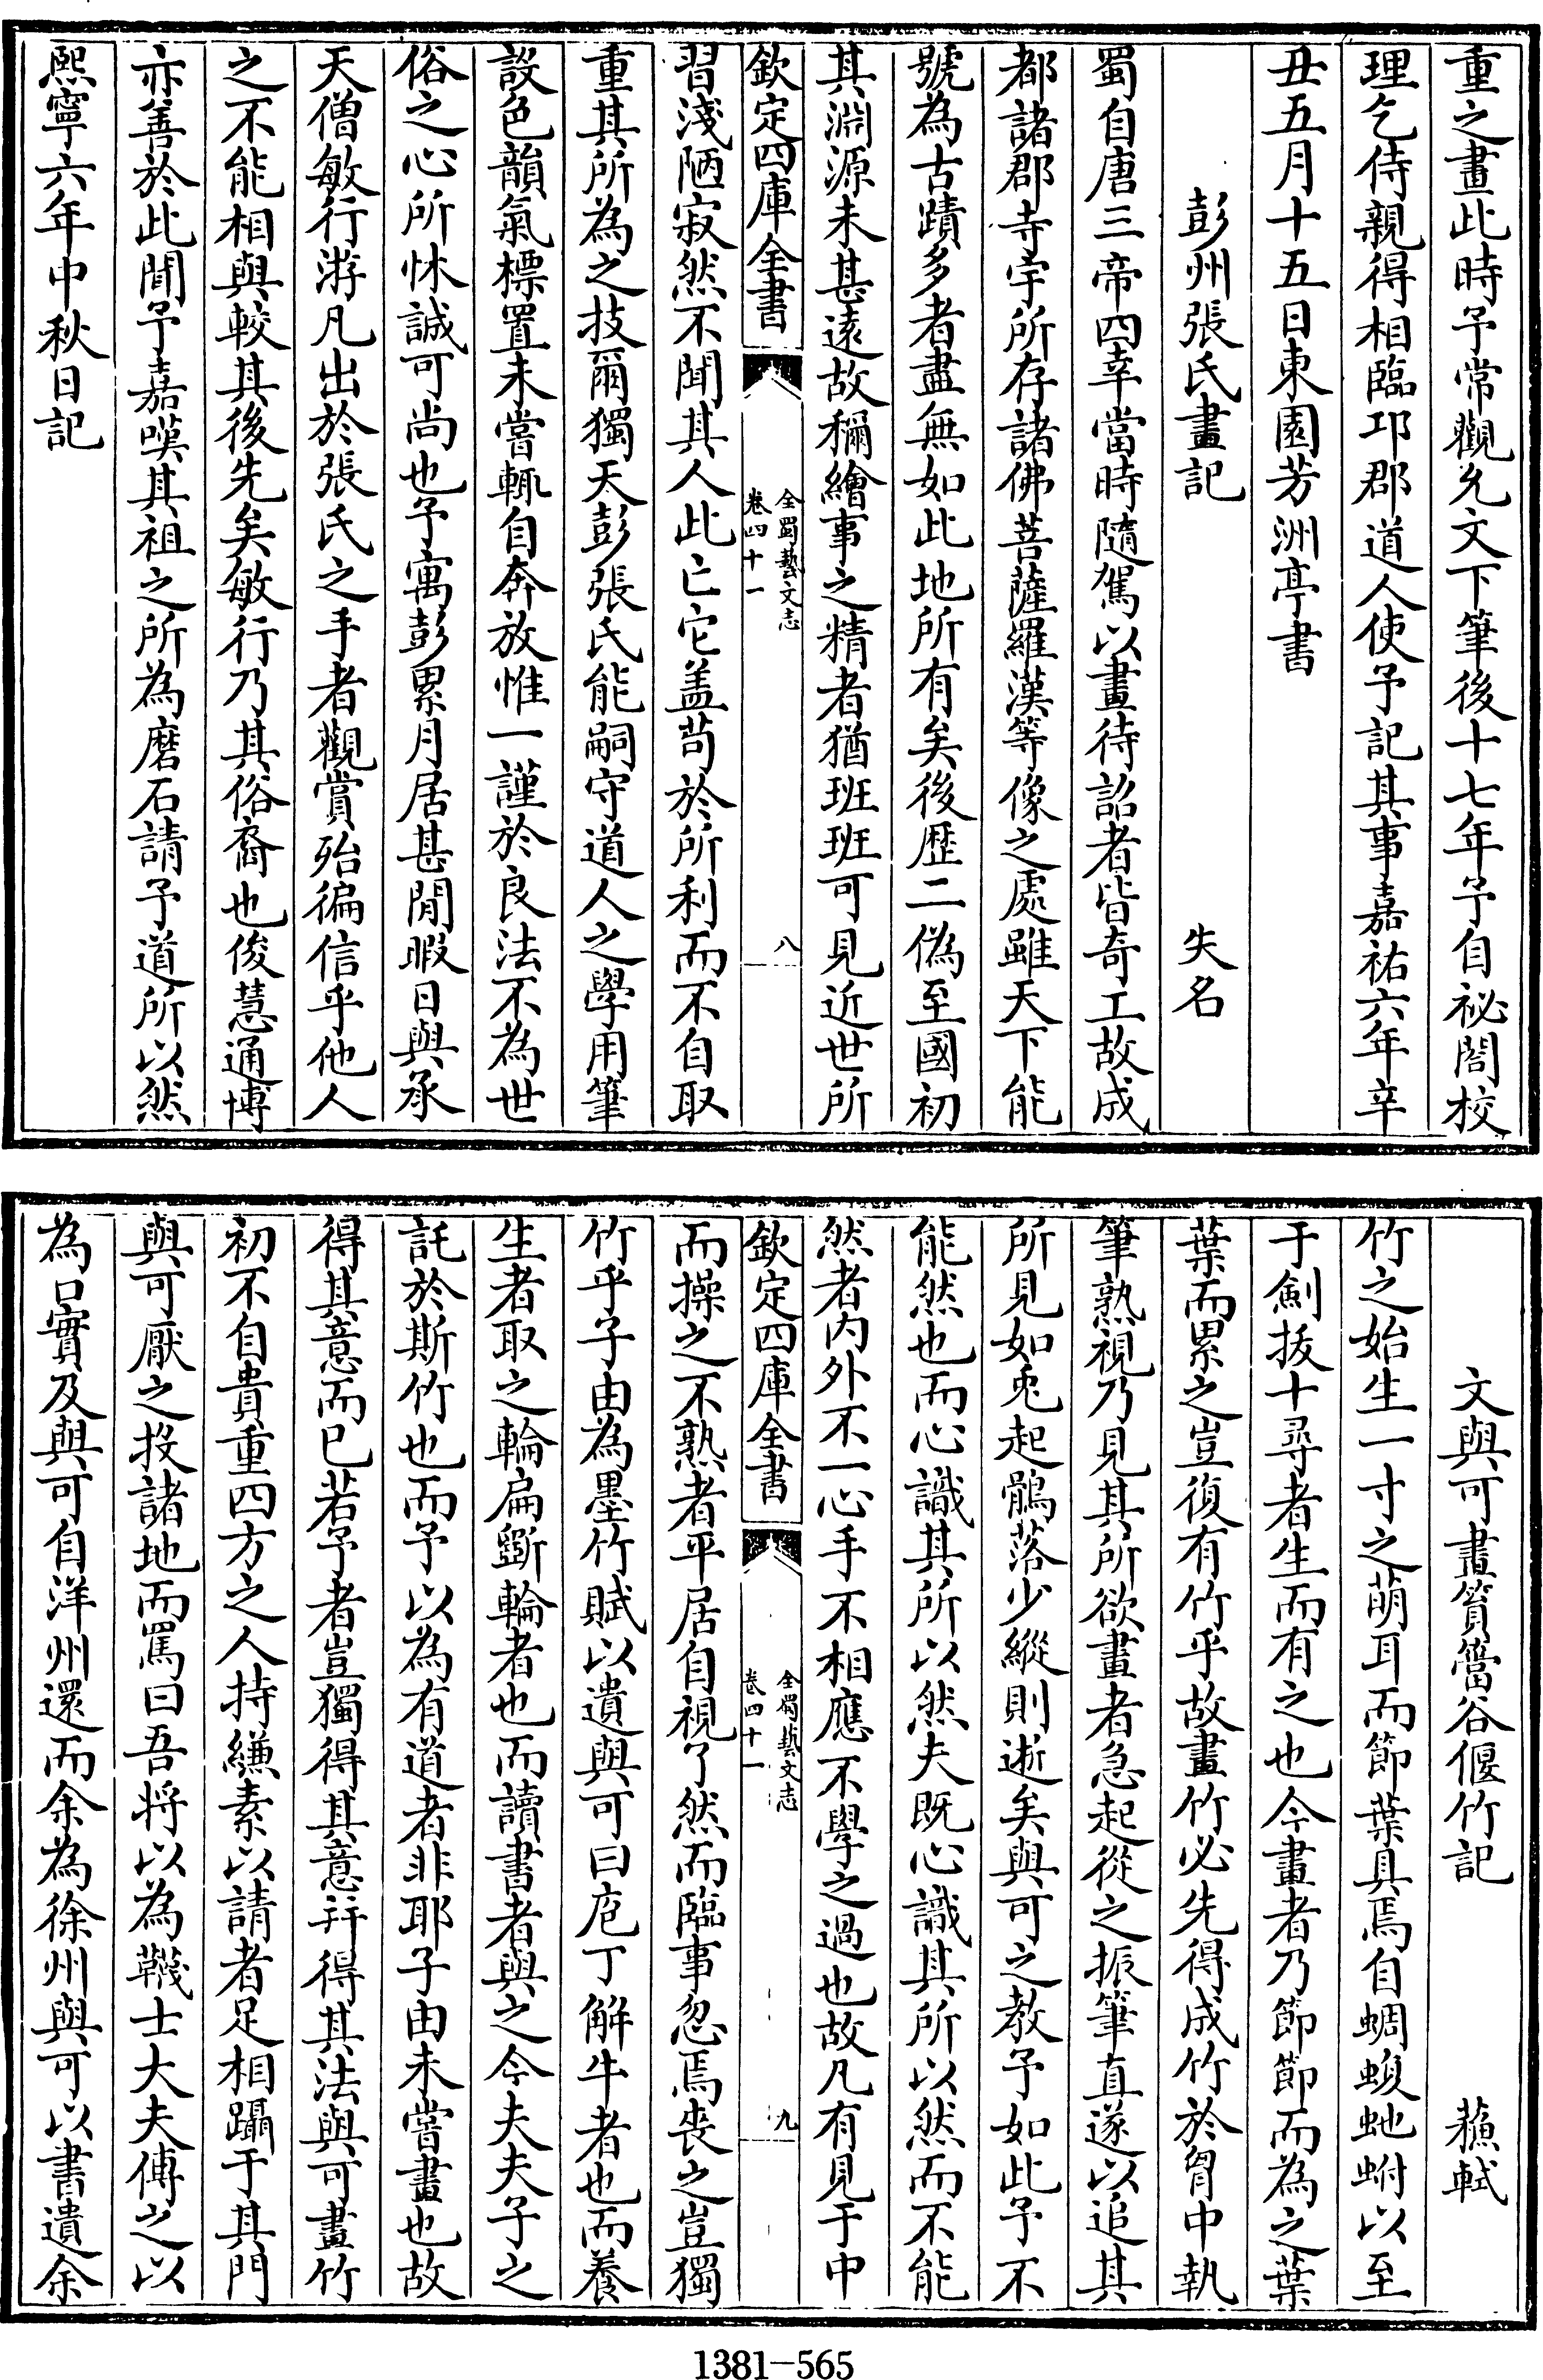 重之畫此時予常觀允文下筆後十七年予自祕閣校
理乞侍親得相臨邛郡道人使予記其事嘉祐六年辛
丑五月十五日東園芳洲亭書
彭州張氏畫記 失名
蜀自唐三帝四幸當時隨駕以畫待詔者皆奇工故成
都諸郡寺宇所存諸佛菩薩羅漢等像之處雖天下能
號為古蹟多者盡無如此地所有矣後歴二偽至國初
其淵源未甚遠故稱繪事之精者猶班班可見近世所
欽定四庫全書 全蜀藝文志 卷四十一 八
習淺陋寂然不聞其人此亡它盖苟於所利而不自取
重其所為之技爾獨天彭張氏能嗣守道人之學用筆
設色韻氣標置未嘗輒自奔放惟一謹於良法不為世
俗之心所怵誠可尚也予寓彭累月居甚閒暇日與承
天僧敏行游凡出於張氏之手者觀賞殆徧信乎他人
之不能相與較其後先矣敏行乃其俗裔也俊慧通博
亦善於此聞予嘉嘆其祖之所為磨石請予道所以然
熙寧六年中秋日記
文與可畫篔簹谷偃竹記 蘇軾
竹之始生一寸之萌耳而節葉具焉自蜩蝮虵蚹以至
于劍拔十尋者生而有之也今畫者乃節節而為之葉
葉而累之豈復有竹乎故畫竹必先得成竹於胷中執
筆熟視乃見其所欲畫者急起從之振筆直遂以追其
所見如兎起鶻落少縱則逝矣與可之教予如此予不
能然也而心識其所以然夫既心識其所以然而不能
然者内外不一心手不相應不學之過也故凡有見于中
欽定四庫全書 全蜀藝文志 卷四十一 九
而操之不熟者平居自視了然而臨事忽焉喪之豈獨
竹乎子由為墨竹賦以遺與可曰庖丁解牛者也而養
生者取之輪扁斵輪者也而讀書者與之今夫夫子之
託於斯竹也而予以為有道者非耶子由未嘗畫也故
得其意而已若予者豈獨得其意并得其法與可畫竹
初不自貴重四方之人持縑素以請者足相躡于其門
與可厭之投諸地而罵曰吾將以為韈士大夫傳之以
為口實及與可自洋州還而余為徐州與可以書遺余
1381-565